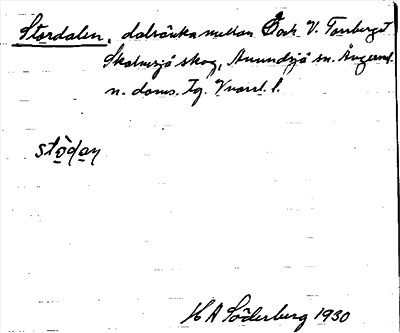 Stordalen, dalsänka mellan Ö. och V. Tarrberget
Skalmsjö skog, Anundsjö sn. Ångerml.
n. doms. Tg.
stö̀dạn
H A Söderberg 1930